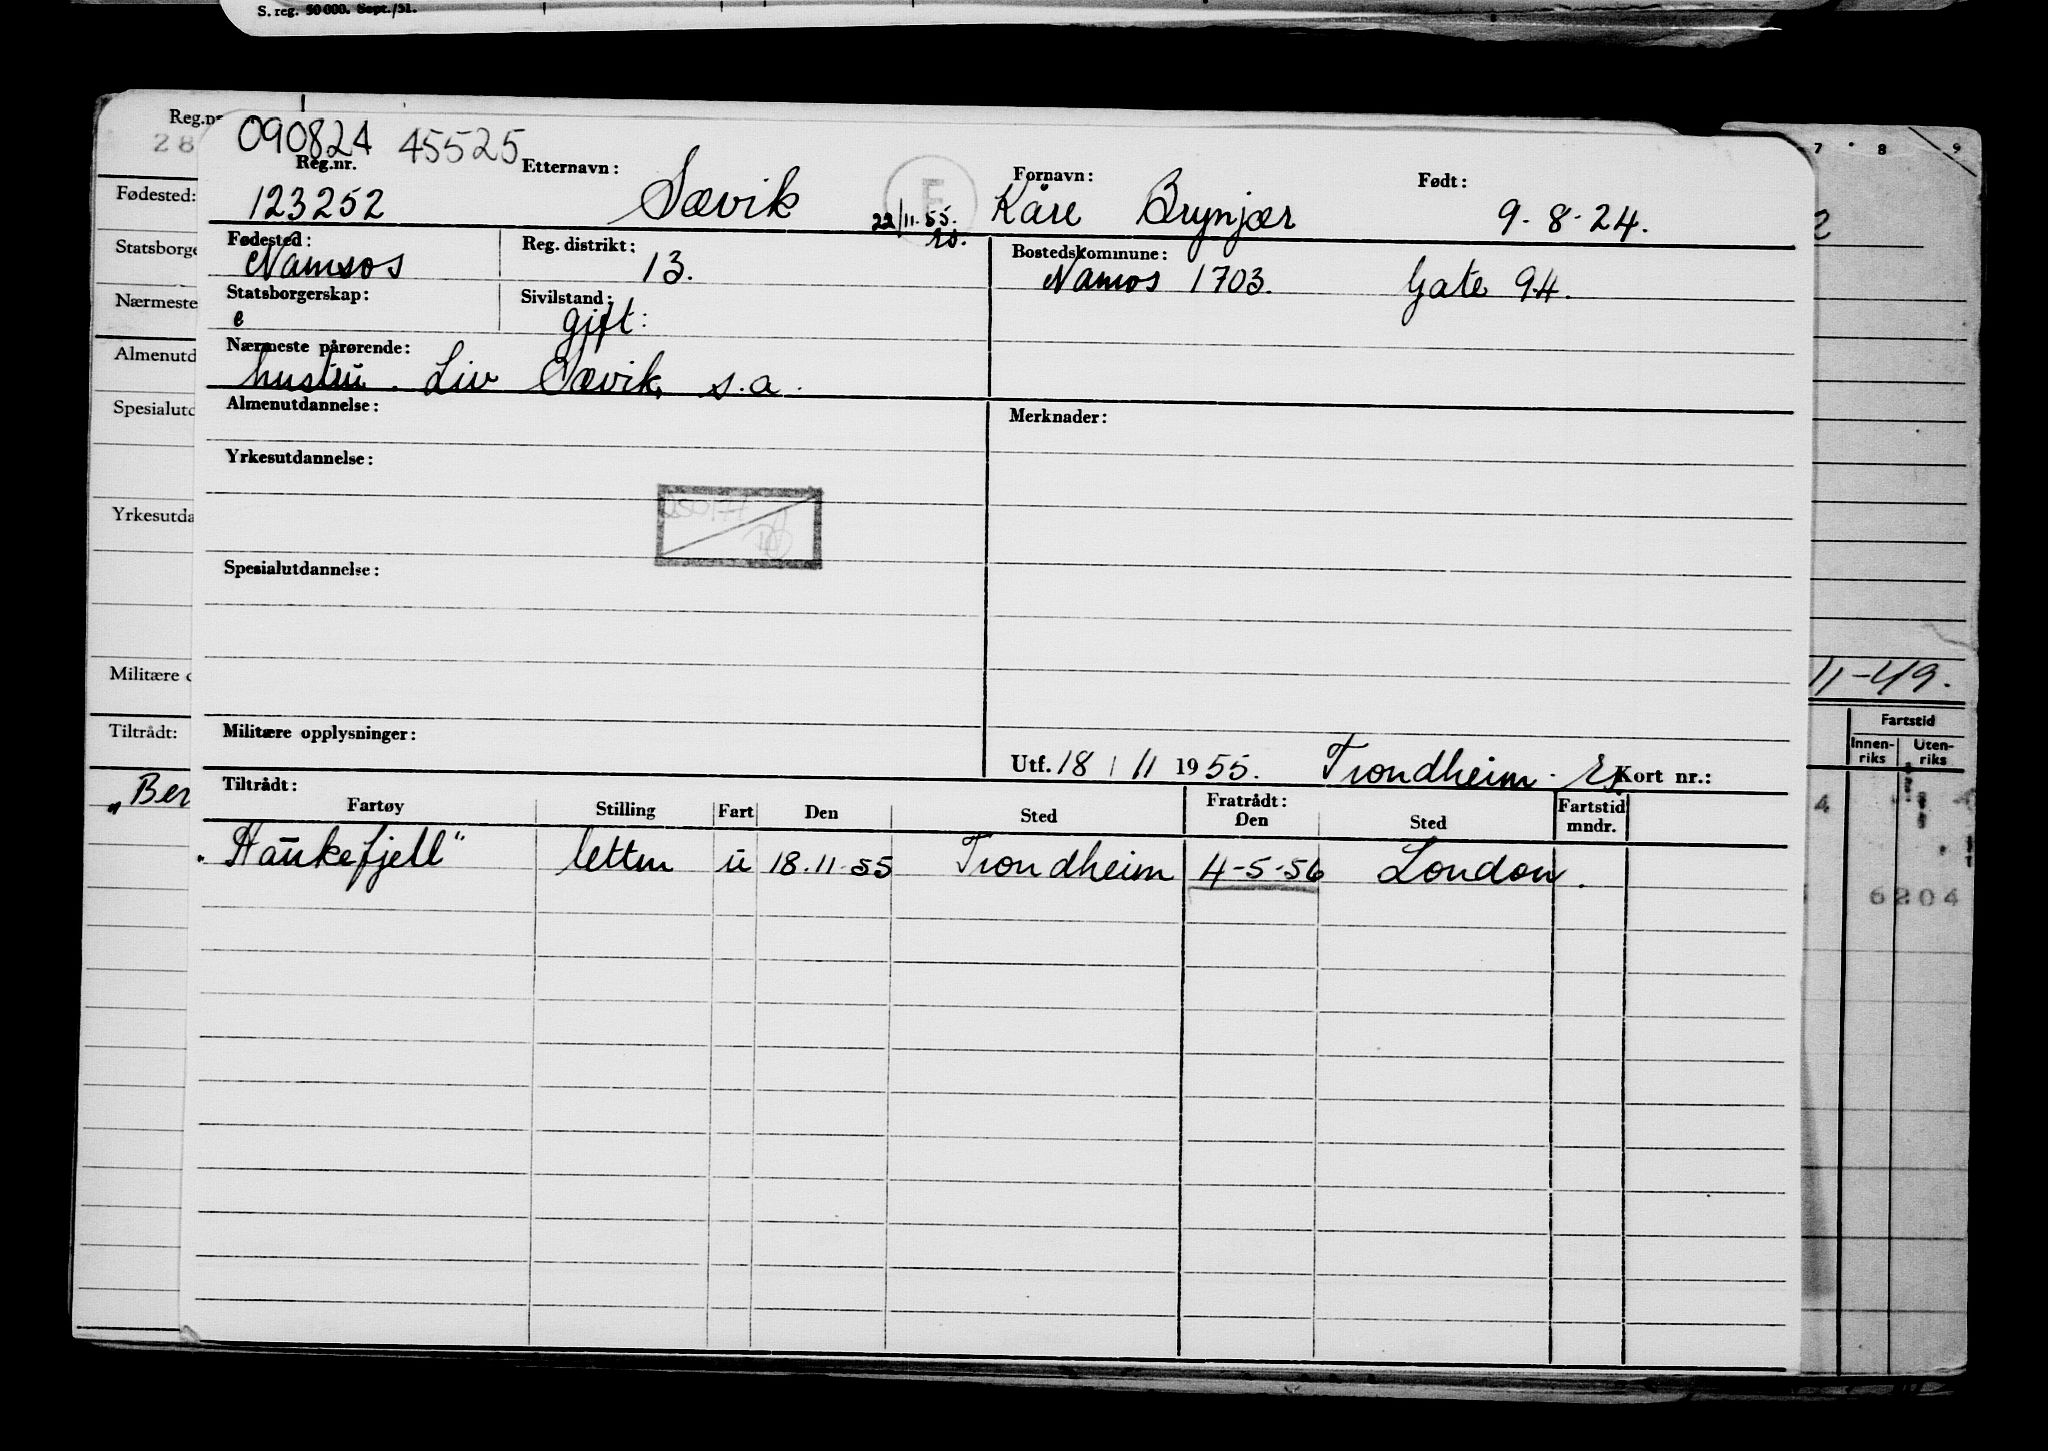 S. reg. 50 000. Sept./51.
090824 45525
Reg.nr. Etternavn: Fornavn: Født:
123252 Sævik E 22/11.55. rs. Kåre Brynjær 9.8.24.
Fødested: Reg. distrikt: Bostedskommune:
Namsos 13. Namsos 1703. Gate 94.
Statsborgerskap: Sivilstand:
e gift:
Nærmeste pårørende:
hustru. Liv Sævik, s.a.
Almenutdannelse: Merknader:
Yrkesutdannelse:
Spesialutdannelse:
Militære opplysninger:
Utf. 18/11 1955. Trondheim. Kort nr.:
Tiltrådt: Fratrådt:
Fartøy Stilling Fart Den Sted Den Sted Fartstid mndr.
"Haukefjell" letten u 18.11.55 Trondheim 4-5-56 London.
Reg.nr
28
Fødested:
Statsborge
Nærmeste
Almenutd
Spesialutd
Yrkesutda
Militære
Tiltrådt:
„Ber
7 8 9
2
11-49.
Fartstid
Innen-riks Uten-riks
4
6204